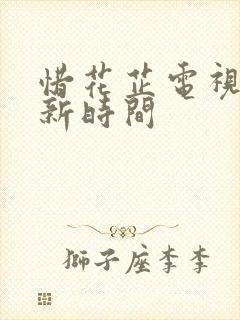 惜花芷電視
新時間
獅子座李李